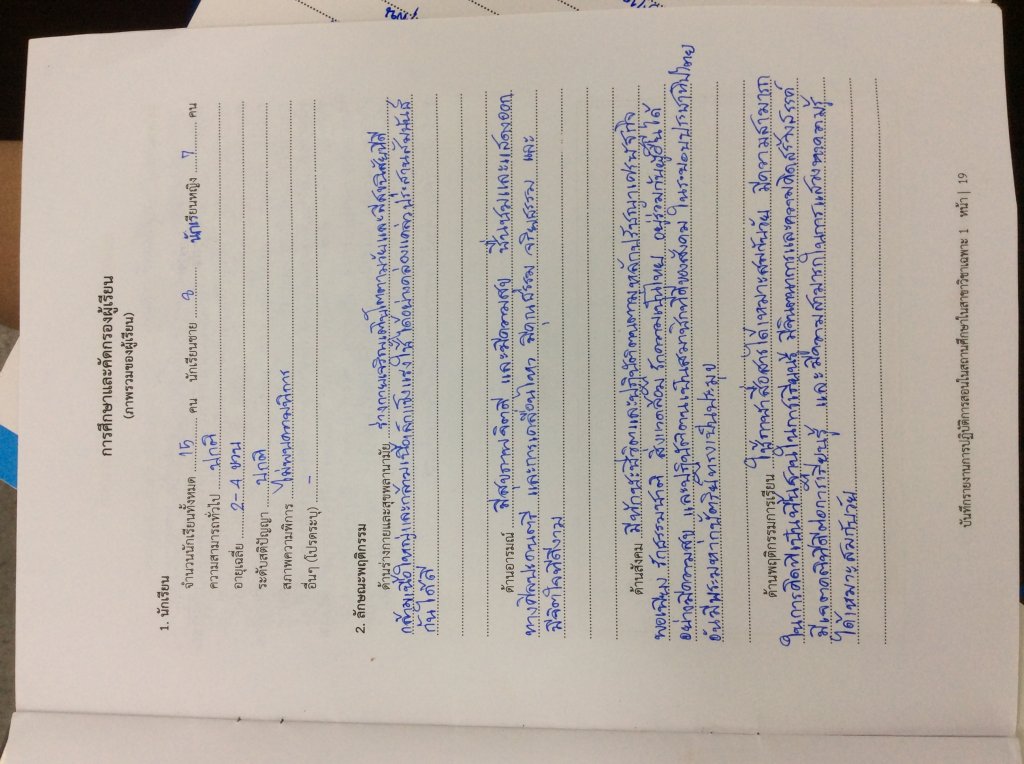 การศึกษาและคัดกรองผู้เรียน
(ภาพรวมของผู้เรียน)
1. นักเรียน
จำนวนนักเรียนทั้งหมด 15 คน นักเรียนชาย 8 นักเรียนหญิง 7 คน
ความสามารถทั่วไป ปกติ
อายุเฉลี่ย 2-4 ขวบ
ระดับสติปัญญา ปกติ
สภาพความพิการ ไม่พบความพิการ
อื่นๆ (โปรดระบุ) -
2. ลักษณะพฤติกรรม
ด้านร่างกายและสุขพลานามัย ร่างกายเจริญเติบโตตามวัยและมีสุขนิสัยที่ดี
กล้ามเนื้อใหญ่และกล้ามเนื้อเล็กแข็งแรงใช้ได้อย่างคล่องแคล่วประสานสัมพันธ์
กันได้ดี
ด้านอารมณ์ มีสุขภาพจิตดี และมีความสุข ชื่นชมและแสดงออก
ทางศิลปะดนตรี และการเคลื่อนไหว มีคุณธรรม จริยธรรม และ
มีจิตใจที่ดีงาม
ด้านสังคม มีทักษะชีวิตและปฏิบัติตนตามหลักปรัชญาเศรษฐกิจ
พอเพียง รักธรรมชาติ สิ่งแวดล้อม รักความเป็นไทย อยู่ร่วมกับผู้อื่นได้
อย่างมีความสุข และปฏิบัติตนเป็นสมาชิกที่ดีของสังคม ในระบอบประชาธิปไตย
อันมีพระมหากษัตริย์ทรงเป็นประมุข
ด้านพฤติกรรมการเรียน ใช้ภาษาสื่อสารได้เหมาะสมกับวัย มีความสามารถ
ในการคิดที่เป็นพื้นฐานในการเรียนรู้ มีจินตนาการและความคิดสร้างสรรค์
มีเจตคติที่ดีต่อการเรียนรู้ และมีความสามารถในการแสวงหาความรู้
ได้เหมาะสมกับวัย
บันทึกรายงานการปฏิบัติการสอนในสถานศึกษาในสาขาวิชาเฉพาะ 1 หน้า | 19